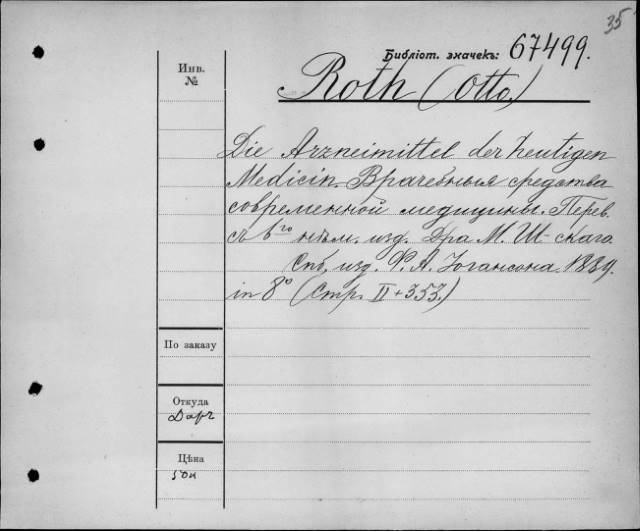 35
Библіот. значекъ: 67499.
Инв.
№
Roth (Otto.)
Die Arzneimittel der heutigen
Medicin. Врачебныя средства
современной медицины. Перев.
съ 6го нѣм. изд. Дра М. Ш-скаго.
Спб. изд. Ф. А. Іогансона. 1889.
in 8° (Стр. II + 353.)
По заказу
Откуда
Даръ
Цѣна